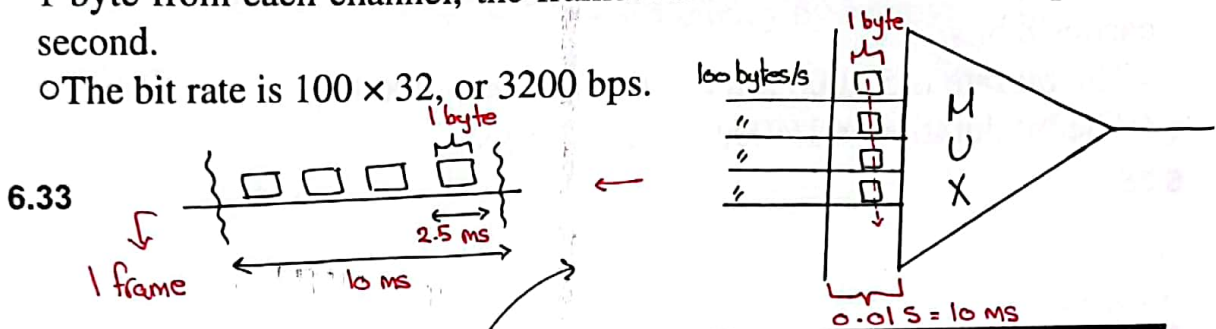 second.
○The bit rate is 100 × 32, or 3200 bps.
1 byte
6.33
2.5 ms
10 ms
1 frame
1 byte
100 bytes/s
"
"
"
M
U
X
0.01 S = 10 ms